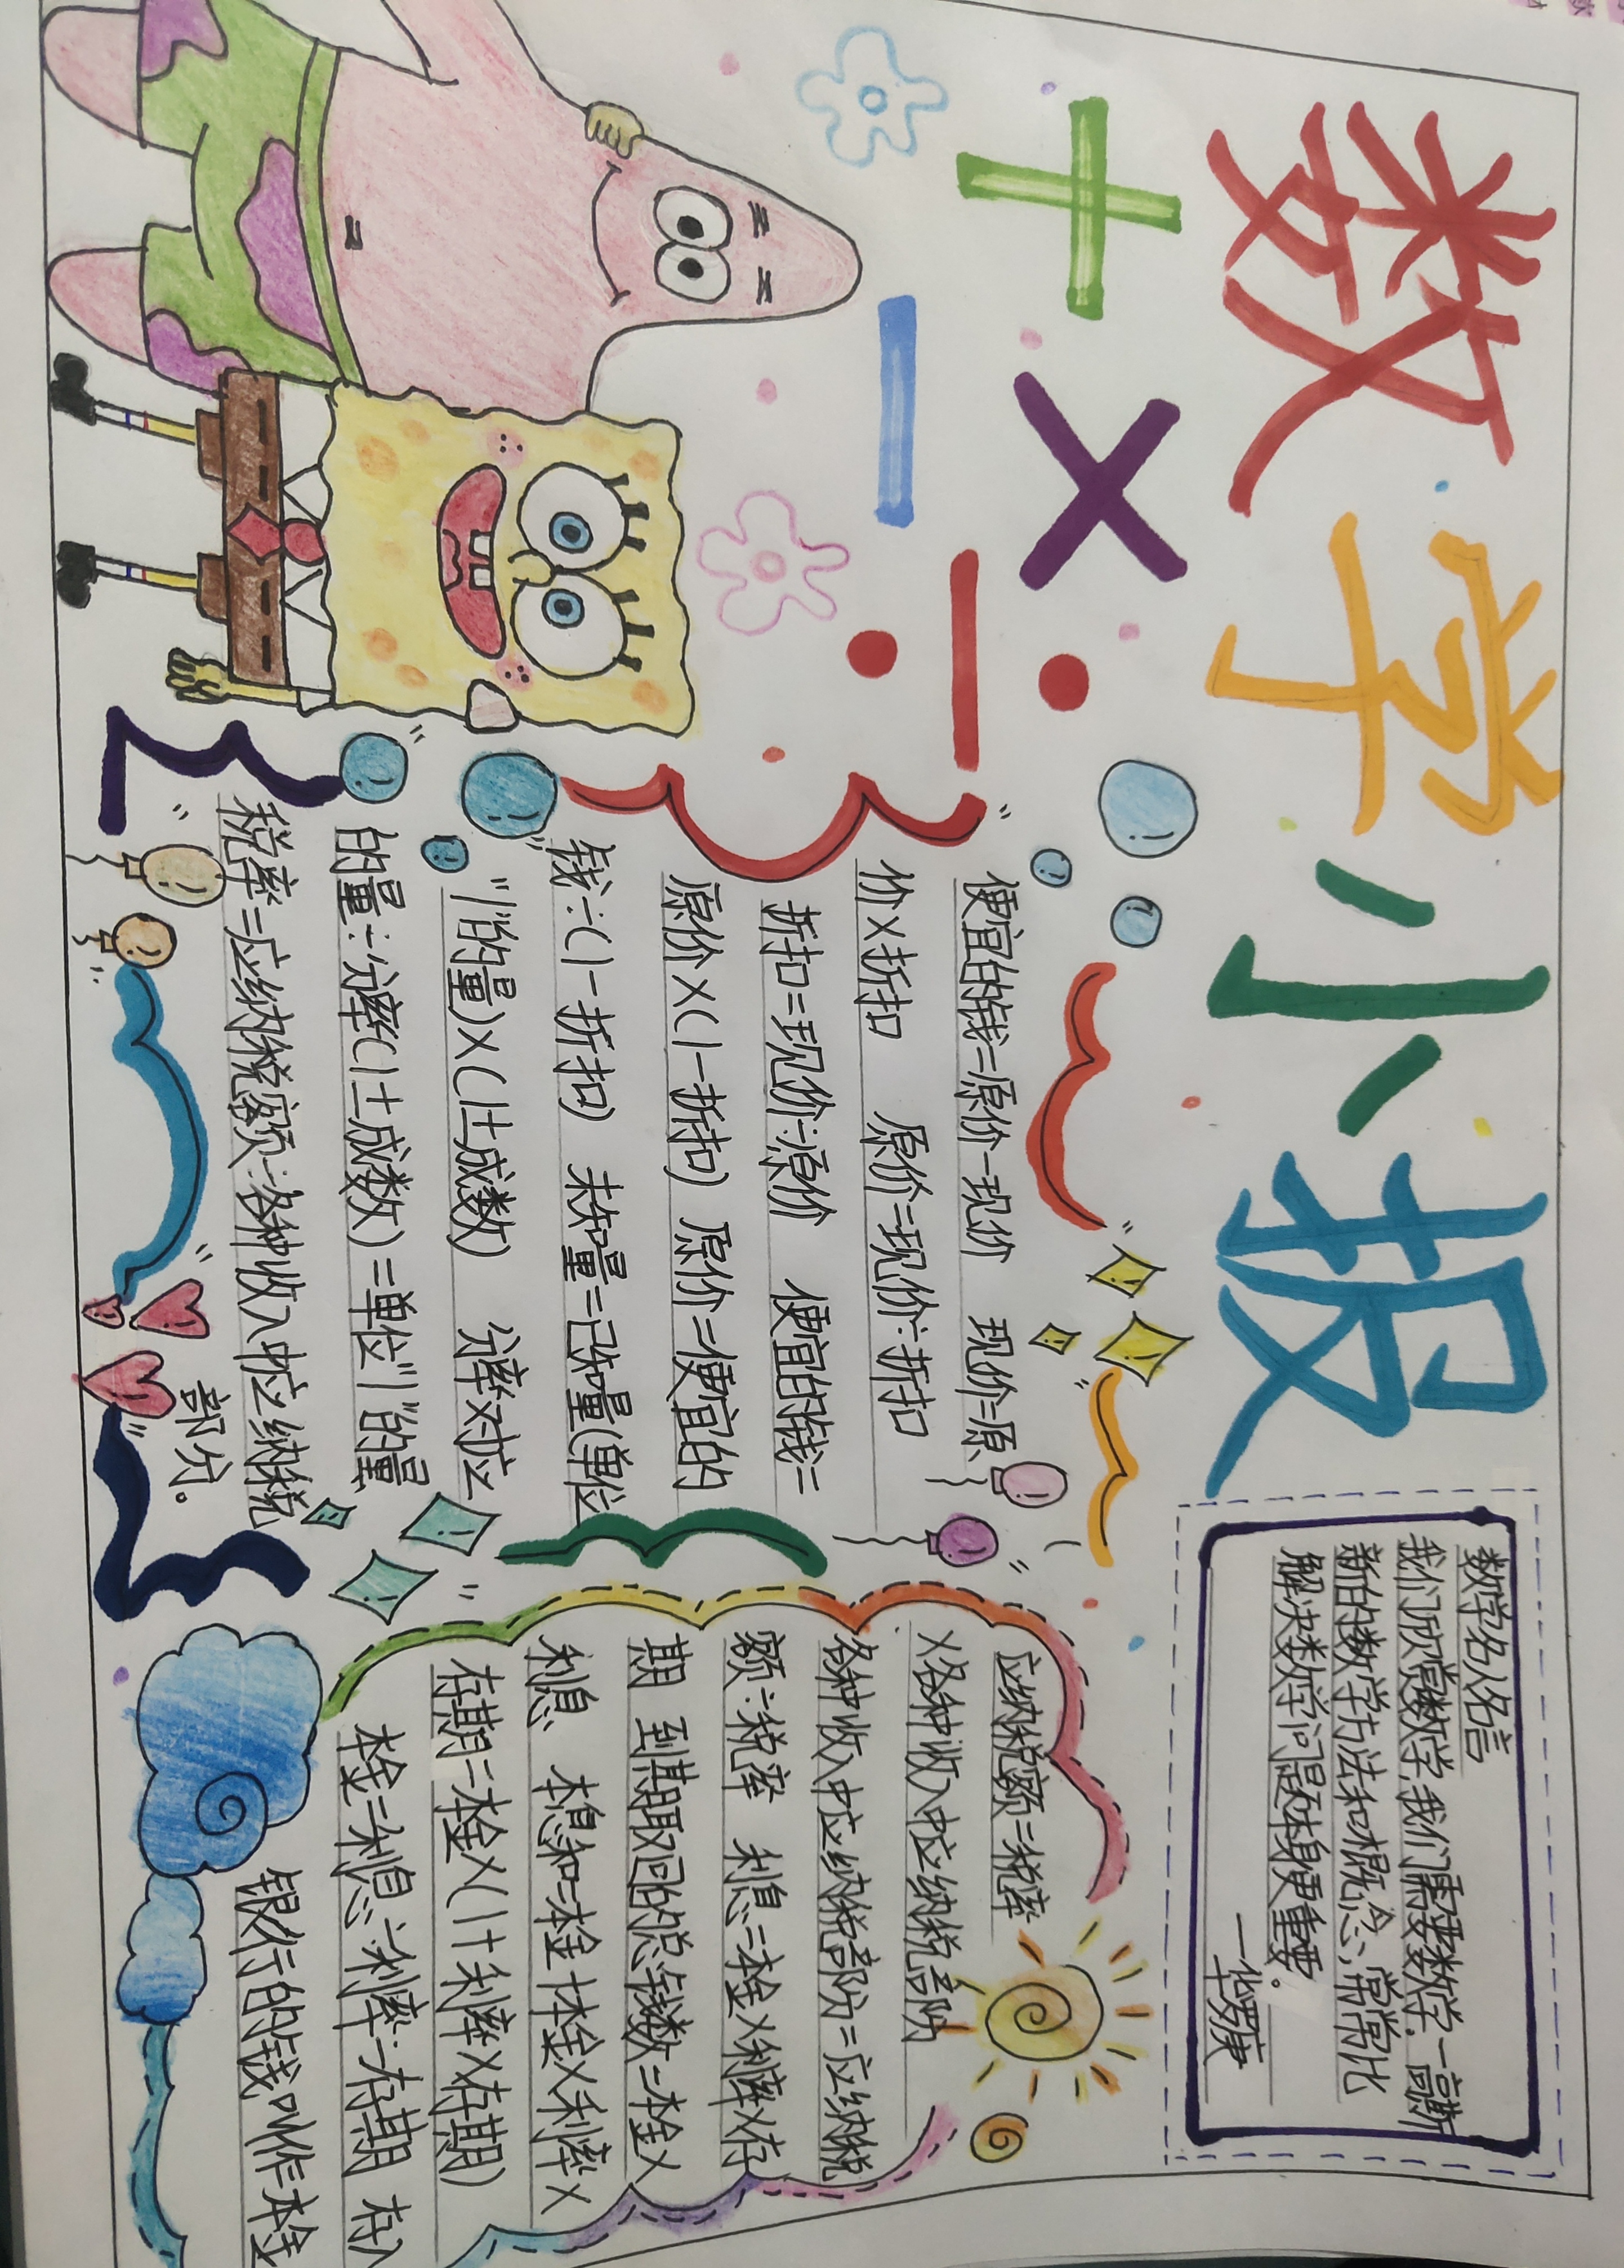 数学小报
+ × − ÷
数学名人名言
我们欣赏数学,我们需要数学.一个新
新的数学方法和概念,常常比
解决数学问题本身更重要。
一华罗庚
便宜的钱=原价-现价 现价=原
价×折扣 原价=现价÷折扣
折扣=现价÷原价 便宜的钱=
原价×(1-折扣) 原价=便宜的
钱÷(1-折扣) 未知量=已知量(单位
"1"的量)×(1±成数) 分率对应
的量÷分率(1±成数)=单位"1"的量
税率=应纳税额÷各种收入中应纳税
部分。
应纳税额=税率
×各种收入中应纳税部分
各种收入中应纳税部分=应纳税
额÷税率 利息=本金×利率×存
期 到期取回的总钱数=本金×
利息 本息和=本金+本金×利率×
存期=本金×(1+利率×存期)
本金=利息÷利率÷存期 存入
银行的钱叫作本金